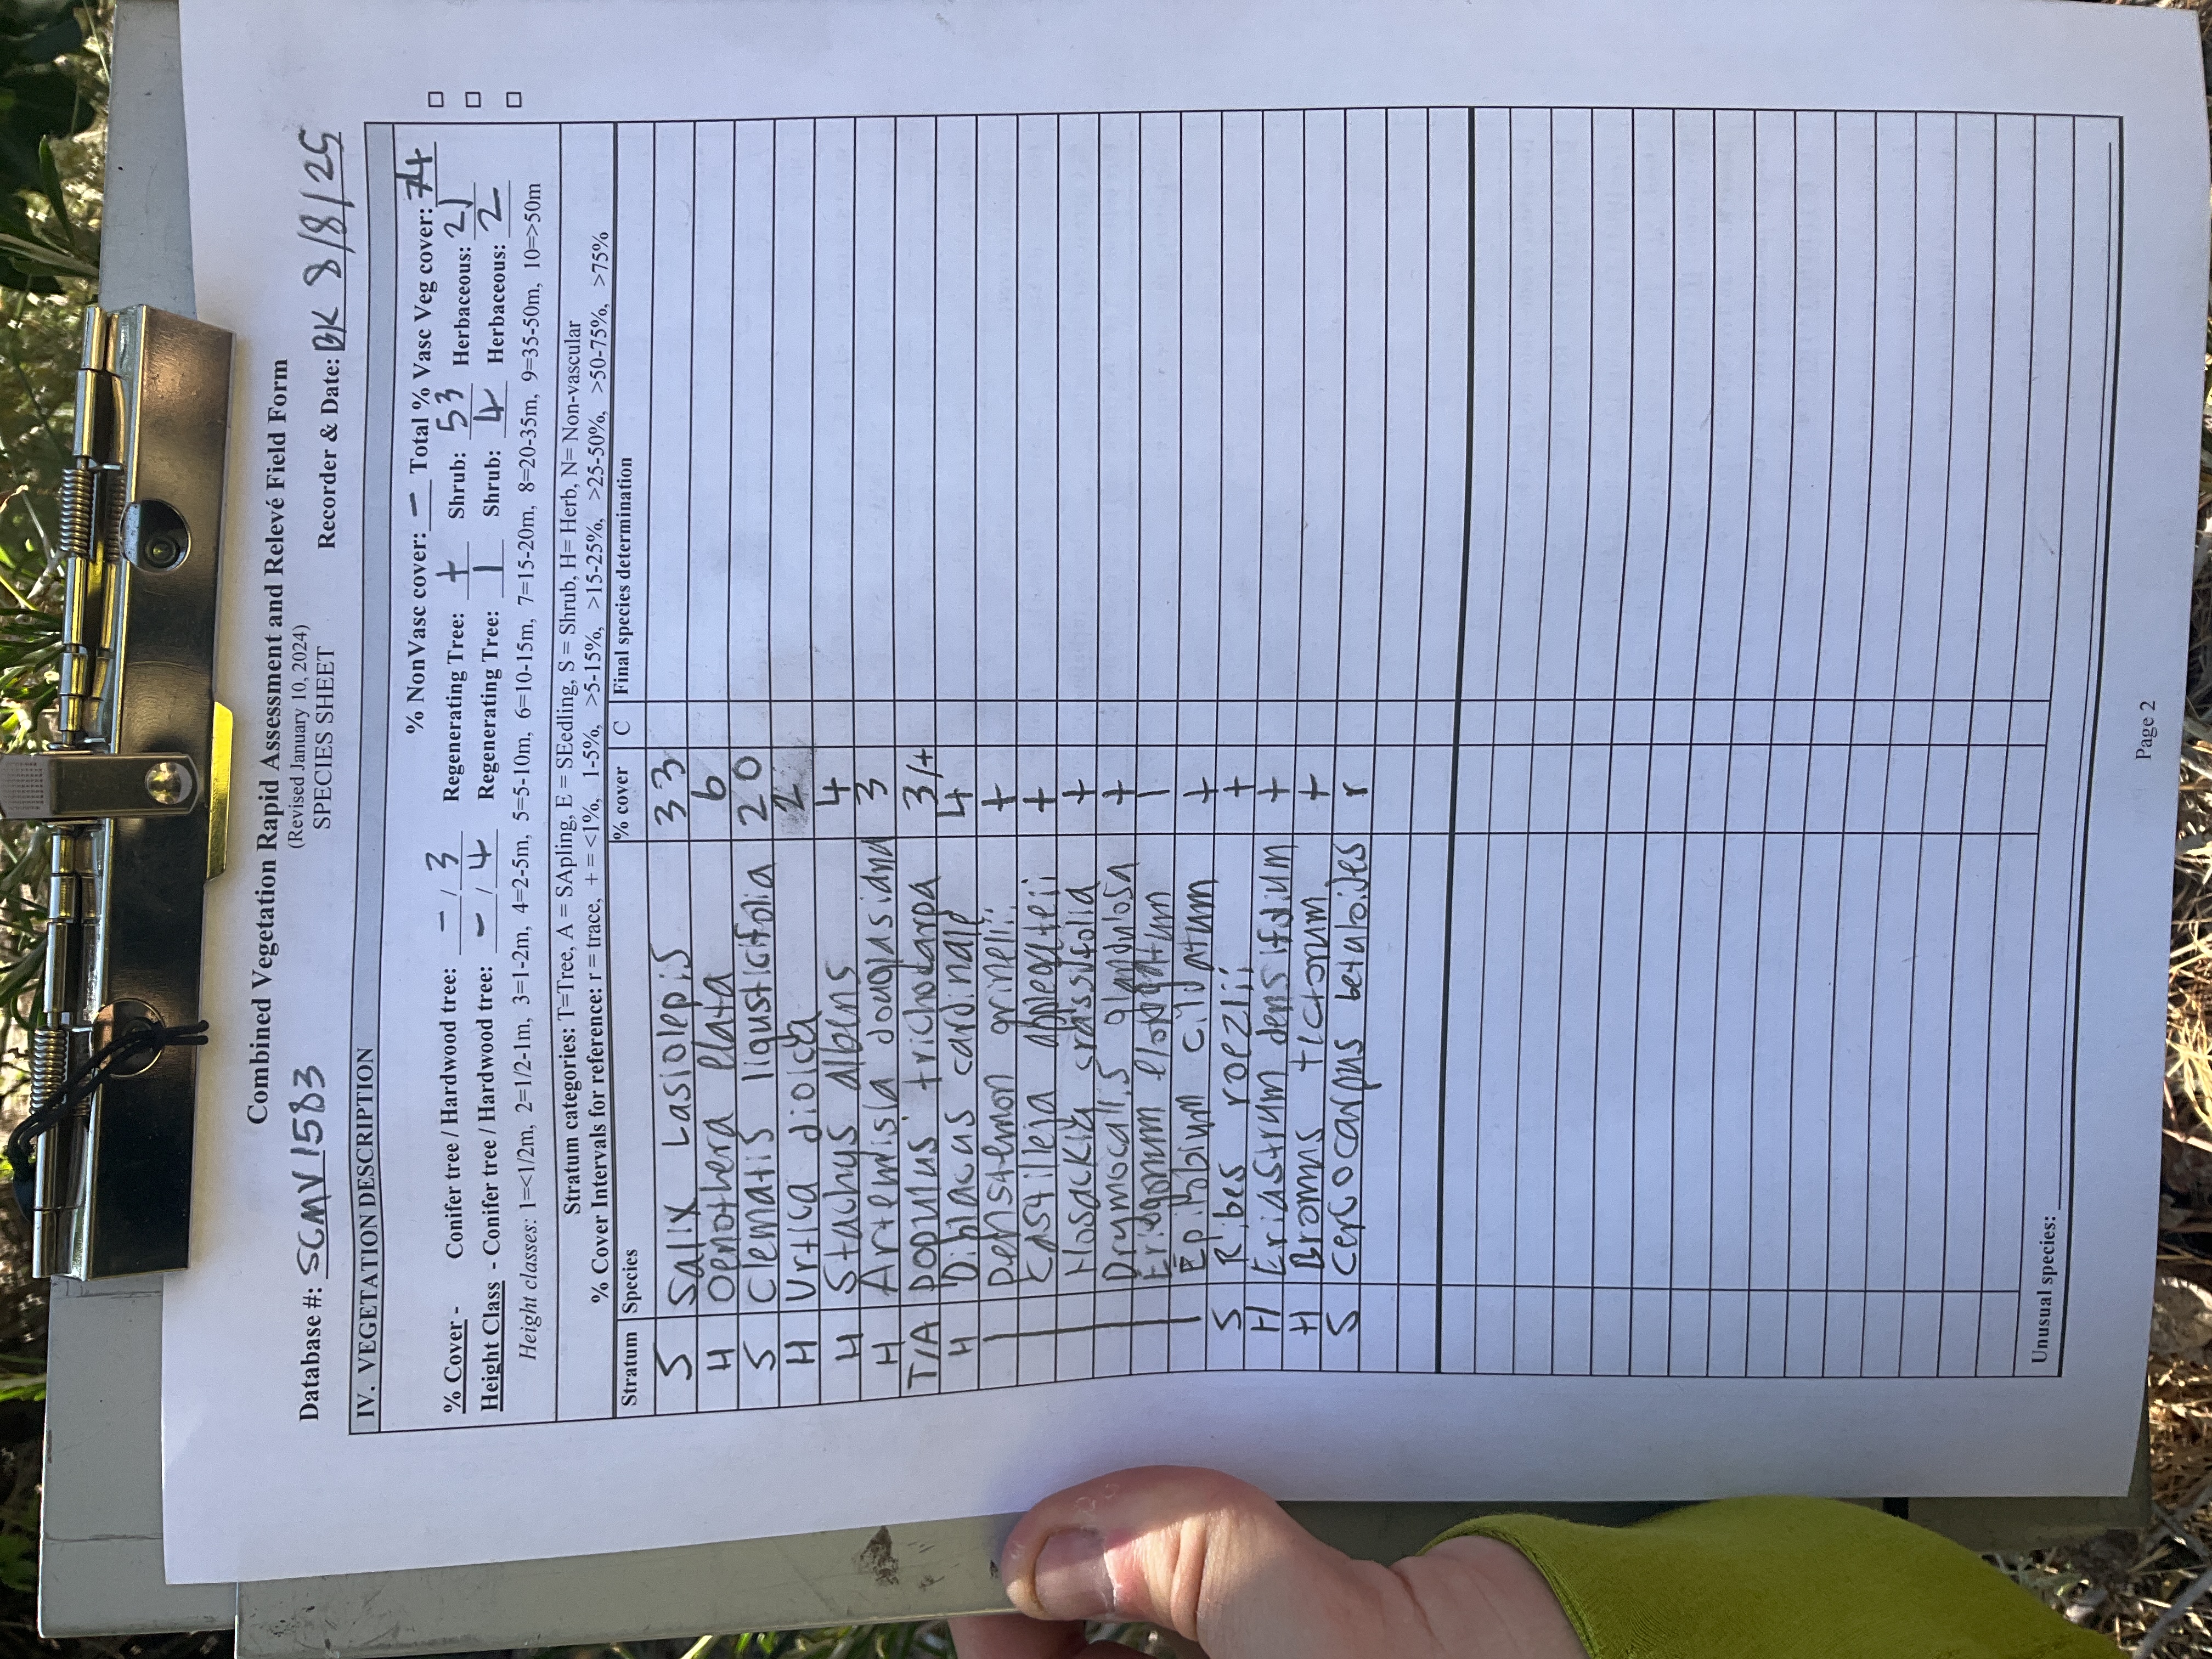 Combined Vegetation Rapid Assessment and Relevé Field Form
(Revised January 10, 2024)
SPECIES SHEET
Database #: SGMV1583 Recorder & Date: BK 8/8/25
IV. VEGETATION DESCRIPTION
% NonVasc cover: — Total % Vasc Veg cover: 74
% Cover - Conifer tree / Hardwood tree: — / 3 Regenerating Tree: + Shrub: 53 Herbaceous: 21
Height Class - Conifer tree / Hardwood tree: — / 4 Regenerating Tree: 1 Shrub: 4 Herbaceous: 2
Height classes: 1=<1/2m, 2=1/2-1m, 3=1-2m, 4=2-5m, 5=5-10m, 6=10-15m, 7=15-20m, 8=20-35m, 9=35-50m, 10=>50m
Stratum categories: T=Tree, A = SApling, E = SEedling, S = Shrub, H= Herb, N= Non-vascular
% Cover Intervals for reference: r = trace, + = <1%, 1-5%, >5-15%, >15-25%, >25-50%, >50-75%, >75%
Stratum Species % cover C Final species determination
S Salix Lasiolepis 33
H Oenothera elata 6
S Clematis ligusticifolia 20
H Urtica dioica 2
H Stachys albens 4
H Artemisia douglasiana 3
T/A Populus trichocarpa 3/+
H Diplacus cardinale 4
| Penstemon grinelii +
| Castilleja applegateii +
| Hosackia crassifolia +
| Drymocallis glandulosa +
| Eriogonum elongatum 1
| Epilobium ciliatum +
S Ribes roezlii +
H Eriastrum densifolium +
H Bromus tectorum +
S Cercocarpus betuloides r
Unusual species:
Page 2